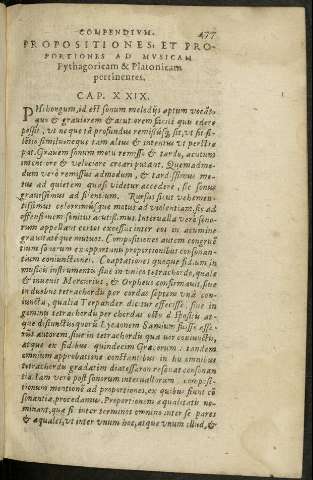 COMPENDIVM. 477
PROPOSITIONES, ET PRO-
PORTIONES AD MVSICAM
Pythagoricam & Platonicam
pertinentes.
CAP. XXIX.
PHthongum, id est sonum melodijs aptum vocāt,
quo & grauiorem & acutiorem fieri quū edere
possit, vt neque tā profundus remissusq; sit, vt sit si-
lentio similis, neque tam altus & intentus vt perstre
pat. Grauem sonum motu remisso & tardo, acutum
intentiore & velociore creari putant. Quemadmo-
dum verò remissus admodum, & tardissimus mo-
tus ad quietem quasi videtur accedere, sic sonus
grauissimus ad silentium. Rursus sicut vehemen-
tissimus celerrimusque motus ad violentiam, sic ad
offensionem sonitus acutissimus. Interualla verò sono-
rum appellant certos excessus inter eos in acumine
grauitateque mutuos. Compositiones autem congruē
tium sonorum ex oportunis proportionibus consonan-
tiam coniunctiones. Coaptationes quoque fidium in
musicis instrumentis siue in vnico tetrachordo, quale
& inuenit Mercurius, & Orpheus confirmauit, siue
in duobus tetrachordis per cordas septem vnà con-
iunctis, qualia Terpander dicitur effecisse, siue in
geminis tetrachordis per chordas octo dispositis at-
que distinctis, quorū Lycaonem Samium fuisse asse-
runt autorem, siue in tetrachordis quatuor coniunctis,
atque ex fidibus quindecim Græcorum tandem
omnium approbatione constantibus in his omnibus
tetrachordis gradatim diatessaron resonat consonan
tia. Iam verò post sonorum interuallorum compositi-
tionum mentionē ad proportiones, ex quibus fiunt cō
sonantiæ, procedamus. Proportionem æqualitatis no-
minant, quæ fit inter terminos omnino inter se pares
& æquales, vt inter vnum hoc, atque vnum illud, &